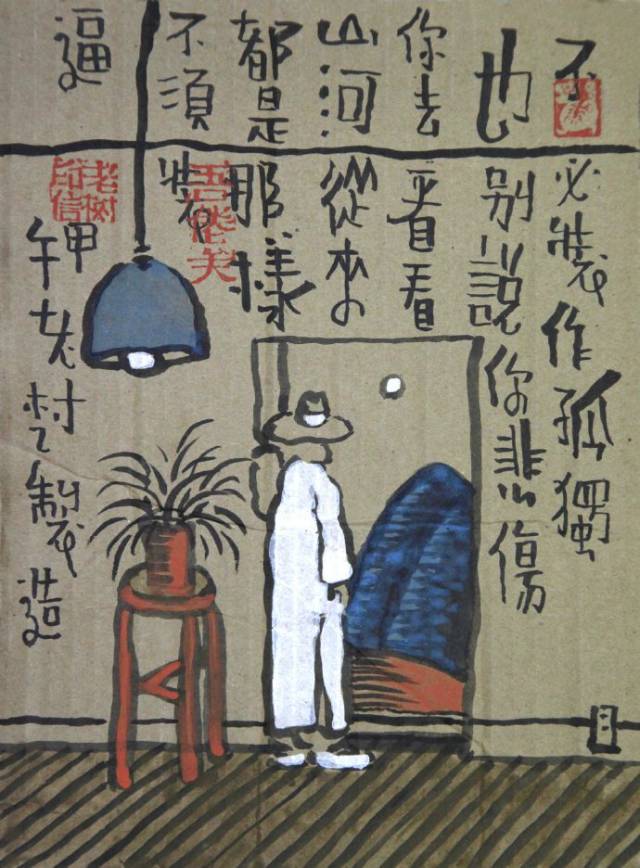 不必裝作孤獨
也别說你悲傷
你去看看
山河從來
都是那樣
不須裝
逼
甲午老树製造
老树
印信